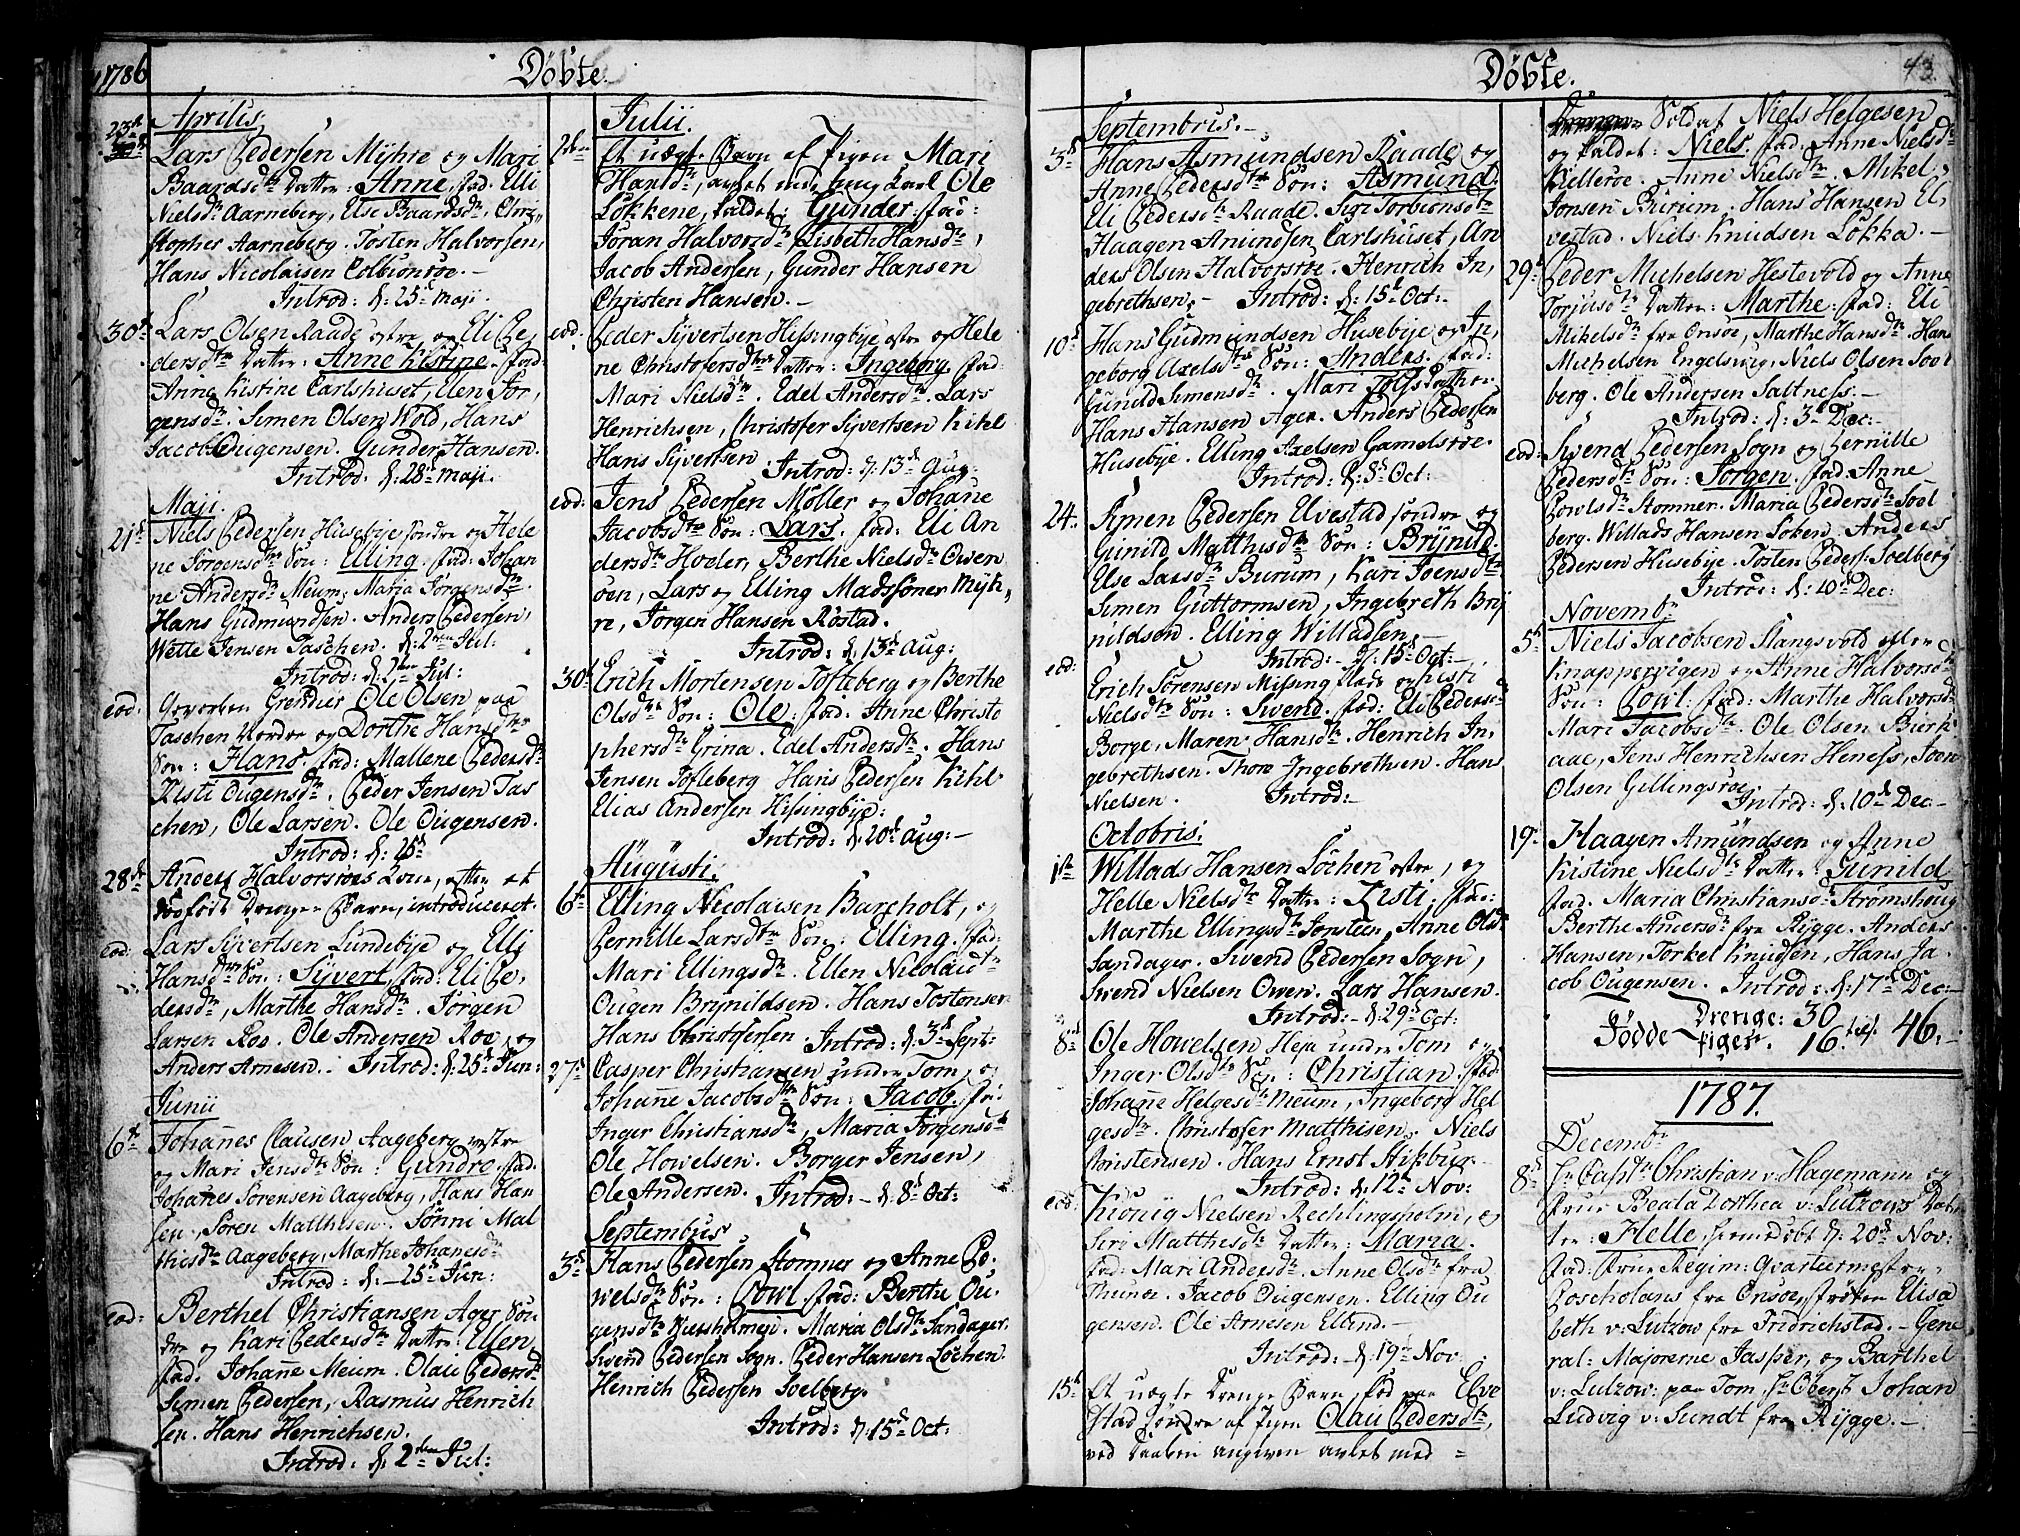 1786
Döbte.
Aprilis.
23d
Lars Pedersen Mÿhre og Mari
Baardsdtr Datter: Anne, fad. Elli
Nielsdr Aarneberg, Else Baardsdtr, Chri-
stopher Aarneberg. Tosten Halvorsen,
Hans Nicolaisen Colbionsröe.-
Introd: d: 25d maji.
30d
Lars Olsen Raade östre og Eli Pe,
dersdtr Datter: Anne Kistine. fad:
Anne Kistine Carlshuset, Elen Jör,
gensdr. Simen Olsen Wold, Hans
Jacob Ougensen. Gunder Hansen.
Introd. d: 28d maji.
Maji.
21d
Niels Pedersen Husebÿe söndre og Hele
ne Jörgensdtr Sön: Elling. fad: Johan
ne Andersdr Meum, Maria Jörgensdtr
Hans Gudmundsen. Anders Pedersen,
Wette Jensen Taschen. d: 2den Jul:
Introd: d: 2den Jul:
eod:
Gevorben Grendier Ole Olsen paa
Taschen Nordre og Dorthe Hansdtr
Sön: Hans. fad: Mallene Pedersdr
Kisti Ougensdr. Peder Jensen Tas
chen, Ole Larsen. Ole Ougensen.
Introd: d: 25d
28de
Anders Halvorsröes Kone, efter et
dödfödt Drenge Barn, introduceret.
eod:
Lars Sÿvertsen Lundebÿe og Elli
Hansdtr Sön: Sÿvert, fad: Eli Pe,
dersdr, Marthe Hansdr. Jörgen
Larsen Roe. Ole Andersen Roe, og
Anders Arnesen. Introd: d: 25d Jun:
Junii
6te
Johannes Clausen Aageberg vestre
og Mari Jensdtr Sön: Gundro. fad.
Johannes Sörensen Aageberg, Hans Han
sen. Sören Matthisen. Sönni Mat
thisdr Aageberg, Marthe Johanesdr
Introd: d:-25d Jun:
eod:
Berthel Christiansen Ager Sön
dre og Kari Pedersdr Datter: Ellen,
fad. Johane Meum. Olau Pedersdr
Simen Pedersen, Rasmus Henrich
sen. Hans Henrichsen.
Introd: d: 2den Jul:
Julii.
2den
Et uægte Barn af Pigen Mari
Hansdr, avlet med ung Karl Ole
Lökkene, kaldet: Gunder. fad:
Joran Halvorsdr Lisbeth Hansdr,
Jacob Andersen, Gunder Hansen
Christen Hansen.-
eod:
Peder Sÿvertsen Hissingbÿe östre og Hele
ne Christofersdtr Datter: Ingeborg. fad:
Mari Nielsdr. Edel Andersdr. Lars
Henrichsen, Christofer Sÿvertsen Kihl
Hans Sÿvertsen. Introd: d: 13d Aug:
eod:
Jens Pedersen Möller og Johane
Jacobsdtr Sön: Lars. fad: Eli An
dersdr Hoeler, Berthe Nielsdr Owen
öen, Lars og Elling Madssöner Mÿh,
re, Jörgen Hansen Röstad.
Introd: d: 13d Aug:
30d
Erich Mortensen Tofteberg og Berthe
Olsdtr Sön: Ole. fad: Anne Christo
phersdr Grina. Edel Andersdr. Hans
Jensen Tofteberg Hans Pedersen Kihl
Elias Andersen Hissingbÿe:
Introd: d: 20d Aug:-
Augusti.
6te
Elling Nicolaisen Bareholt, og
Pernille Larsdtr Sön: Elling. fad:
Mari Ellingsdr. Ellen Nicolaidtr
Ougen Brÿnildsen. Hans Tostensen
Hans Christofersen. Introd: d: 3d Sept:
27d
Casper Christiansen under Tom, og
Johane Jacobsdtr Sön: Jacob. fad:
Inger Christiansdr, Maria Jörgensdr
Ole Howelsen. Börger Jensen,
Ole Andersen. Introd:- d: 8d Oct:
Septembris
3d
Hans Pedersen Stomner og Anne Po,
welsdr Sön: Powl. fad: Berthe Ou,
gensdr Huitsholmen. Maria Olsdr Sandager.
Swend Pedersen Sogn. Peder Hansen Löchen.
Henrich Pedersen Soelberg.
Introd: d: 15d Oct:
Döbte.
43.
Septembris.-
3d
Hans Asmundsen Raade og
Anne Pedersdtr Sön: Asmund.
Eli Pedersdtr Raade. Siri Torbionsdtr
Haagen Amundsen Carlshuset, An
ders Olsen Halvorsröe. Henrich In,
gebrethsen.- Introd: d: 15d Oct:
10d
Hans Gudmundsen Husebÿe og In,
geborg Axelsdtr Sön: Anders. fad:
Gunild Simensdr. Mari
Hans Hansen Ager. Anders Pedersen
Husebÿe. Elling Axelsen Gamelsröe.
Introd: d: 8d Oct:
24.
Simen Pedersen Elvestad söndre og
Gunild Matthisdr Sön: Brÿnild.
Else Larsdr Burum, Kari Joensdtr
Simen Guttormsen, Ingebreth Brÿ
nildsen. Elling Willadsen.-
Introd:- d: 15d Oct:-
eod:
Erich Sörensen Missingstade og Kisti
Nielsdtr Sön: Swend. fad: Eli Pedersdr
Borge, Maren Hansdr. Henrich In,
gebrethsen. Thore Ingebrethsen. Hans
Nielsen. Introd:-
Octobris.
1ste
Willads Hansen Löchen östre, og
Helle Nielsdtr Datter: Kisti. fad:
Marthe Ellingsdr Jonsteen, Anne Olsdr
Sandager. Swend Pedersen Sogn,
Swend Nielsen Owen. Lars Hansen.
Introd:- d: 29d Oct:
8d
Ole Howelsen Heja under Tom og
Inger Olsdtr Sön: Christian. fad:
Johanne Helgesdr Meum, Ingeborg Hel
gesdr. Christofer Matthisen. Niels
Christensen. Hans Ernst
Introd: d: 12d Nov:
eod:
Kiönig Nielsen Rechlingsholm, og
Siri Matthisdr Datter: Maria.
fad: Mari Andersdr. Anne Olsdr fra
Thunöe. Jacob Ougensen. Elling Ou
gensen. Ole Arnesen Ellind.-
Introd:- d: 19d Nov:
15d
Et uægte Drenge Barn, föd paa Elve
stad söndre af Pigen Olau Pedersdtr,
ved Daaben angiven avlet med =
Soldat Niels Helgesen
og kaldet: Niels. fad: Anne Nielsdr
Kielleröe. Anne Nielsdr. Mikel
Jonsen Burum. Hans Hansen El,
vestad. Niels Knudsen Lökka.-
29d
Peder Michelsen Hestevold og Anne
Torjusdtr Datter: Marthe. fad: Eli
Mikelsdr fra Onsöe, Marthe Hansdr. Hans
Michelsen Engelsvig, Niels Olsen Soel
berg. Ole Andersen Saltness.-
Introd: d: 3d Dec:
eod:
Swend Pedersen Sogn og Pernille
Pedersdtr Sön: Jörgen. fad: Anne
Powlsdr Stomner. Maria Pedersdtr Soel
berg. Willads Hansen Löken. Anders
Pedersen Husebÿe. Tosten Peders: Soelberg
Introd: d: 10d Dec:
Novembr
5d
Niels Jacobsen Slangsvold eller
Knappervigen og Anne Halvorsdr
Sön: Powl. fad: Marthe Halvorsdr
Mari Jacobsdr. Ole Olsen Birk
aae, Jens Henrichsen Heness, Soen
Olsen Gillingsröe.
Introd: d: 10d Dec-
19.
Haagen Amundsen og Anne
Kistine Nielsdtr Datter: Gunild
fad. Maria Christiansdr Strömshoug
Berthe Anersdr fra Rÿgge. Anders
Hansen, Torkel Knudsen, Hans Ja
cob Ougensen. Introd: d: 17d Dec:-
Födde Drenge: 30
Piger. 16. tils. 46.-
1787.
Decembr
8d
Hr Captn Christian v: Hagemann og
Frue Beata Dorthea v: Lutzows Dat
ter: Helle, hiemedöbt d: 20d Nov:
fad: Frue Regim: Qvarteermester
Poscholans fra Onsöe, fröken Elisa
beth v: Lutzow fra Fridrichstad.- Gene
ral: Majorerne Jasper, og Barthel
v: Lutzow: paa Tom, Hr Oberst Johan
Ludvig v: Sundt fra Rÿgge.-